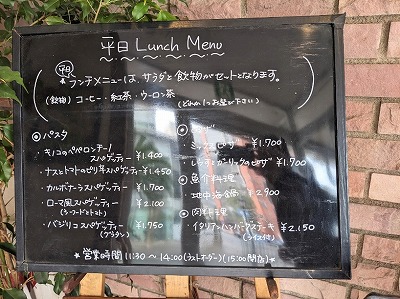 平日 Lunch Menu
平日
★ランチメニューは、サラダと飲物がセットとなります。
(飲物) コーヒー・紅茶・ウーロン茶 (どれか1つお選び下さい)
◎パスタ
・キノコのペペロンチーノ
スパゲッティー ¥1.400
・ナスとトマトのピリ辛スパゲッティー ¥1.450
・カルボナーラスパゲッティー ¥1.700
・ローマ風スパゲッティー ¥2.100
(シーフードとトマト)
・バジリコスパゲッティー ¥1.750
(グラタン)
・ミックスピザ ¥1.700
ガーリックのピザ ¥1.700
◎魚介料理
・地中海鍋 ¥2.900
◎肉料理
・イタリアンハンバーグステーキ ¥2.150
(ライス付)
★営業時間 11:30 ~ 14:00(ラストオーダー)(15:00閉店)★